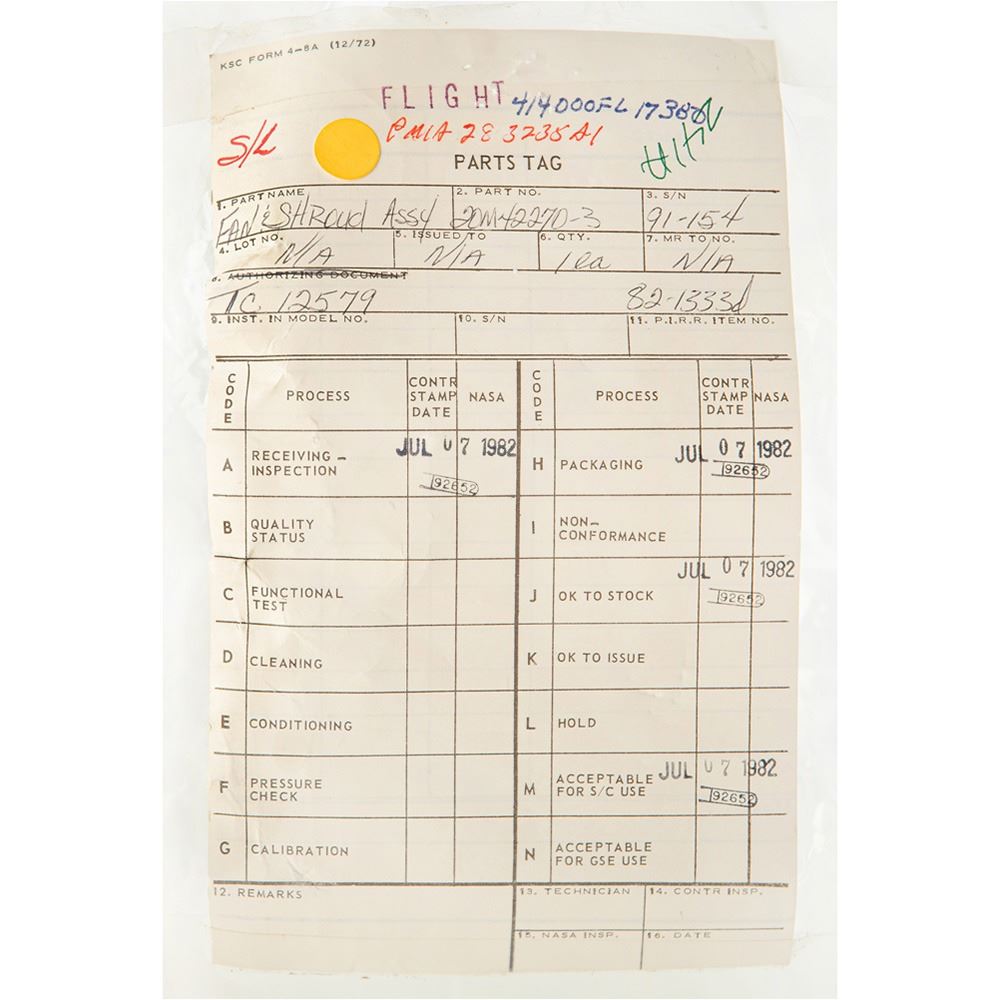 KSC FORM 4-8A (12/72)
FLIGHT
S/L
PMIA 2E 3235A1
PARTS TAG
1. PARTNAME 2. PART NO. 3. S/N
FAN & SHROUD ASSY 20M42270-3 91-154
4. LOT NO. 5. ISSUED TO 6. QTY. 7. MR TO NO.
N/A N/A 1ea N/A
8. AUTHORIZING DOCUMENT
TC 12579
9. INST. IN MODEL NO. 10. S/N 11. P.I.R.R. ITEM NO.
CODE PROCESS CONTR STAMP DATE NASA CODE PROCESS CONTR STAMP DATE NASA
A RECEIVING – INSPECTION JUL 07 1982 92652 H PACKAGING JUL 07 1982 92652
B QUALITY STATUS I NON– CONFORMANCE
C FUNCTIONAL TEST J OK TO STOCK JUL 07 1982 92652
D CLEANING K OK TO ISSUE
E CONDITIONING L HOLD
F PRESSURE CHECK M ACCEPTABLE FOR S/C USE JUL 07 1982 92652
G CALIBRATION N ACCEPTABLE FOR GSE USE
12. REMARKS 13. TECHNICIAN 14. CONTR INSP.
15. NASA INSP. 16. DATE